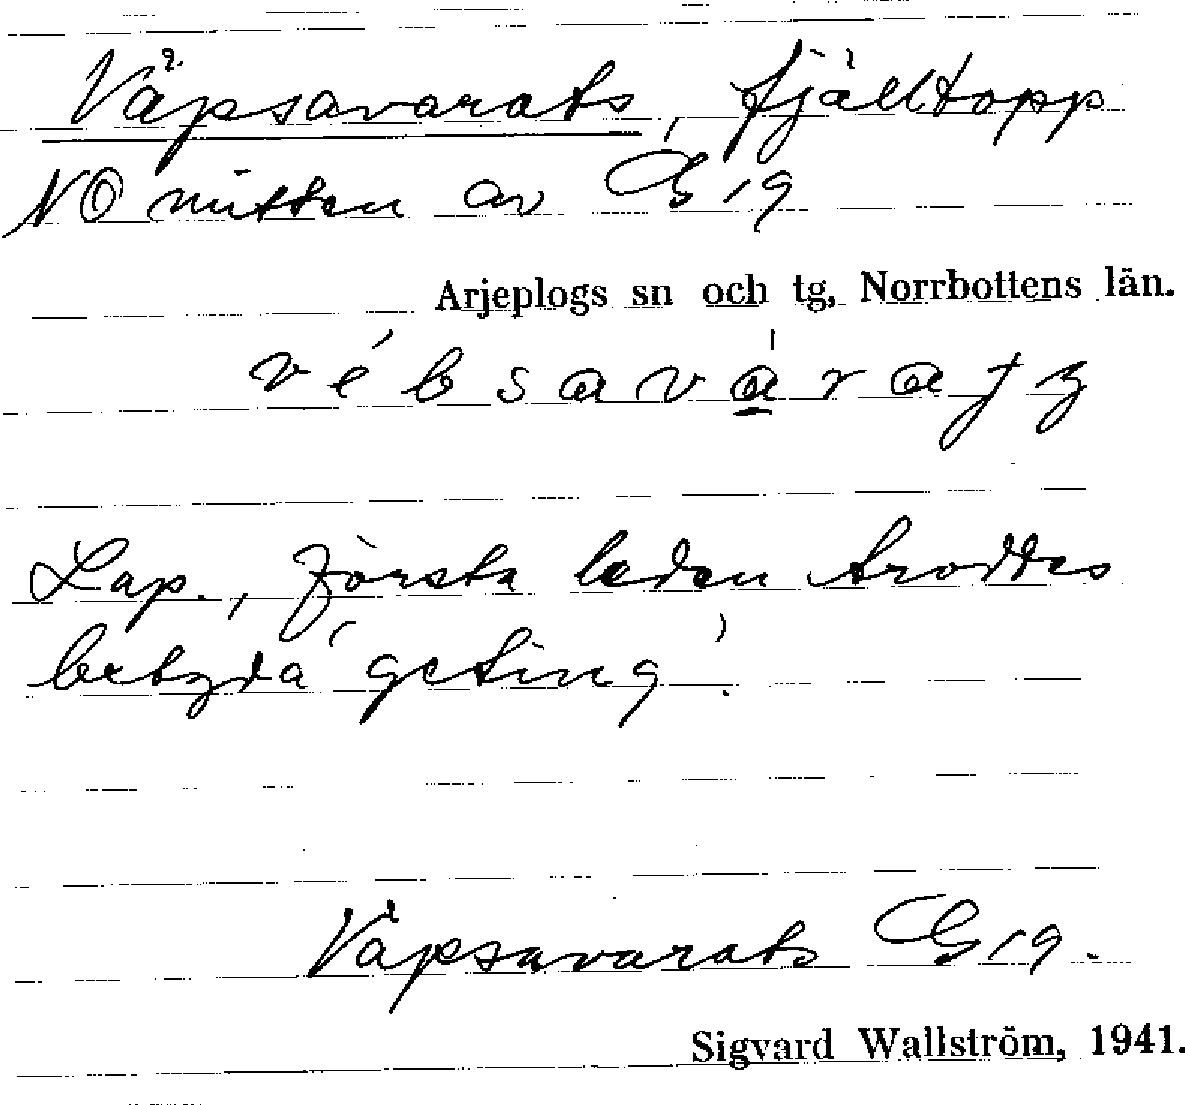 Väpsavarats, fjälltopp
NO mitten av G 19
Arjeplogs sn och tg, Norrbottens län.
v é b s a v á r a t z
Lap., första leden troddes
betyda 'geting'.
Väpsavarats G 19.
Sigvard Wallström, 1941.